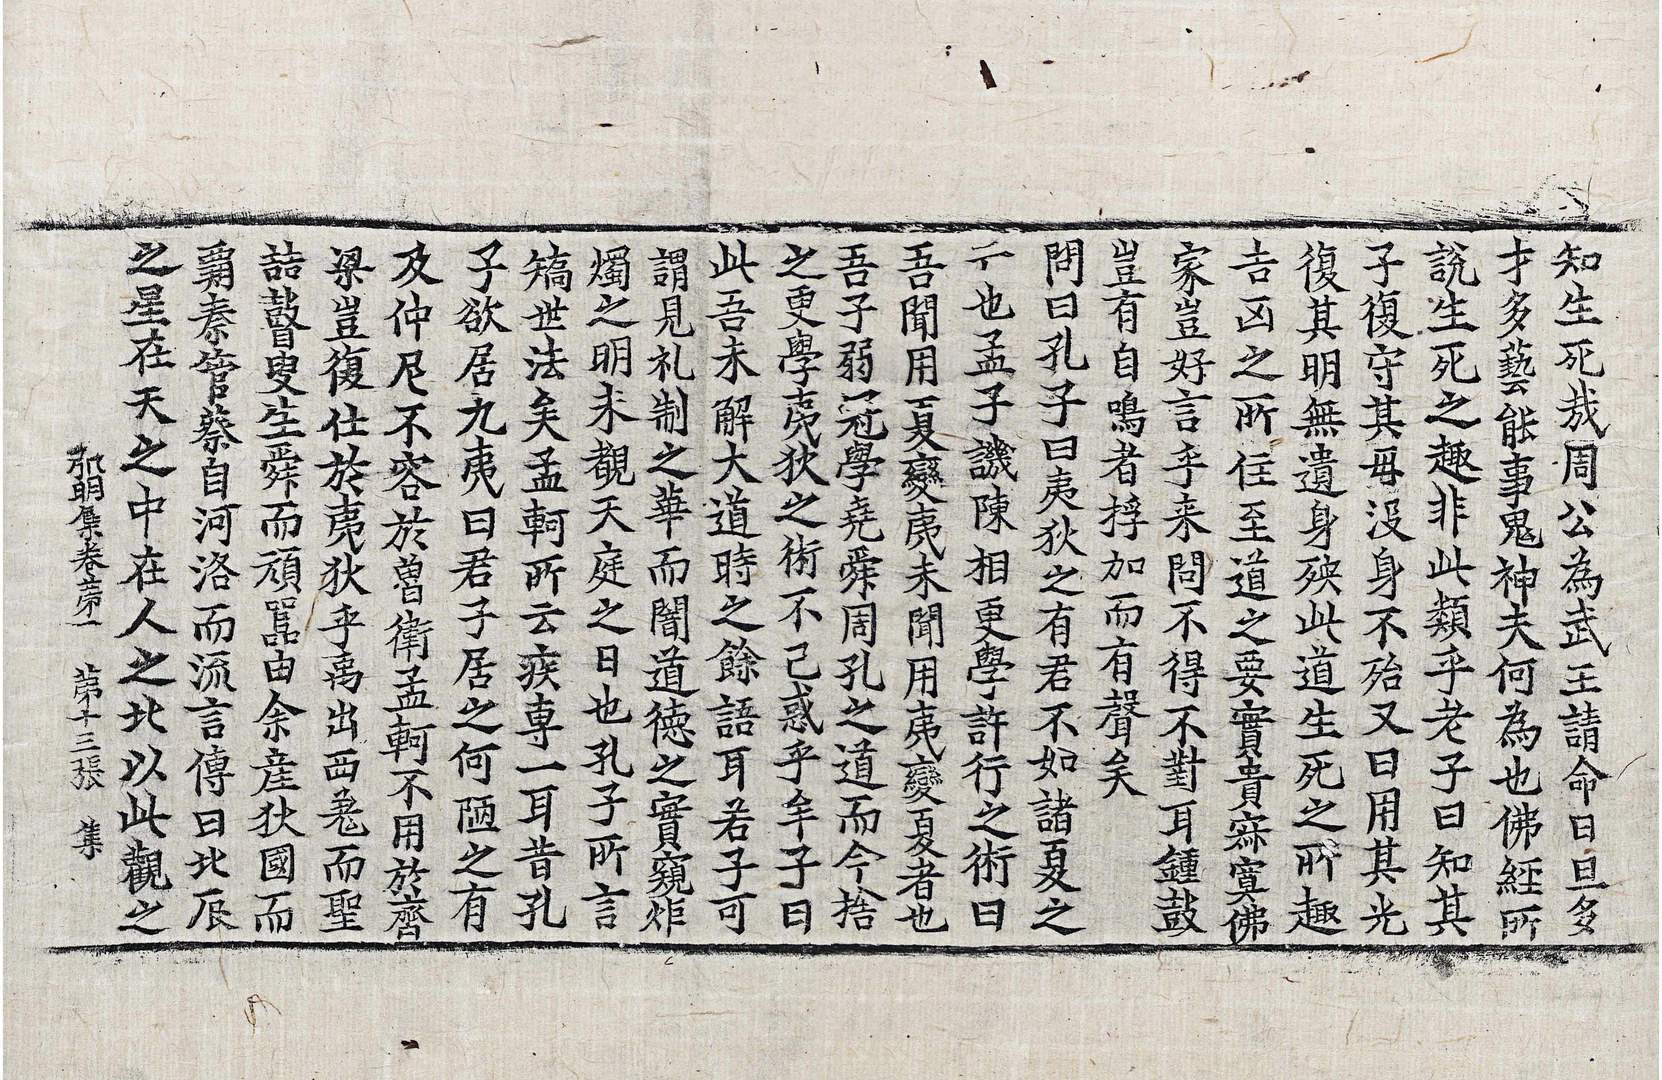 知生死哉周公為武王請命曰旦多
才多藝能事鬼神夫何為也佛經所
說生死之趣非此類乎老子曰知其
子復守其母没身不殆又曰用其光
復其明無遺身殃此道生死之所趣
吉凶之所住至道之要實貴寂寞佛
家豈好言乎来問不得不對耳鍾鼓
豈有自鳴者捊加而有聲矣
問曰孔子曰夷狄之有君不如諸夏之
亡也孟子譏陳相更學許行之術曰
吾聞用夏變夷未聞用夷變夏者也
吾子弱冠學堯舜周孔之道而今捨
之更學夷狄之術不已惑乎牟子曰
此吾未解大道時之餘語耳若子可
謂見礼制之華而闇道德之實窺炬
燭之明未覩天庭之日也孔子所言
矯世法矣孟軻所云疾専一耳昔孔
子欲居九夷曰君子居之何陋之有
及仲尼不容於魯衛孟軻不用於齊
梁豈復仕於夷狄乎禹出西羌而聖
喆瞽叟生舜而頑嚚由余産狄國而
霸秦管蔡自河洛而流言傳曰北辰
之星在天之中在人之北以此觀之
弘明集卷苐一 苐十三張 集